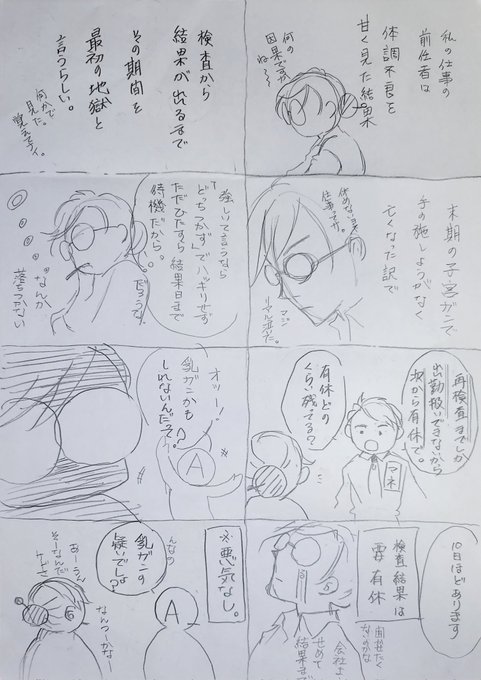 私の仕事の
前任者は
体調不良を
甘く見た結果
何の
因果ですかね〜
末期の子宮ガンで
手の施しようがなく
亡くなった訳で
休めない
仕事
マジ
再検査までしか
出勤扱いできないから
次から有休で。
マネ
有休どの
くらい残ってる?
10日ほどあります
検査結果は
要有休
会社よ
せめて
結果まで
検査から
結果が出るまで
その期間を
最初の地獄と
言うらしい。
何かで
見た。
覚えてナイ。
強いて言うなら
「どっちつかず」でハッキリせず
ただひたすら結果日まで
待機だから。
だろうな
なんか
落ちつかない
オッ!
乳ガンかも
しれないんだって。
A
※悪気なし。
んなの
乳ガンの
疑いでしょ?
A
あーうん
そーなんだ
けど
なんつーかなー